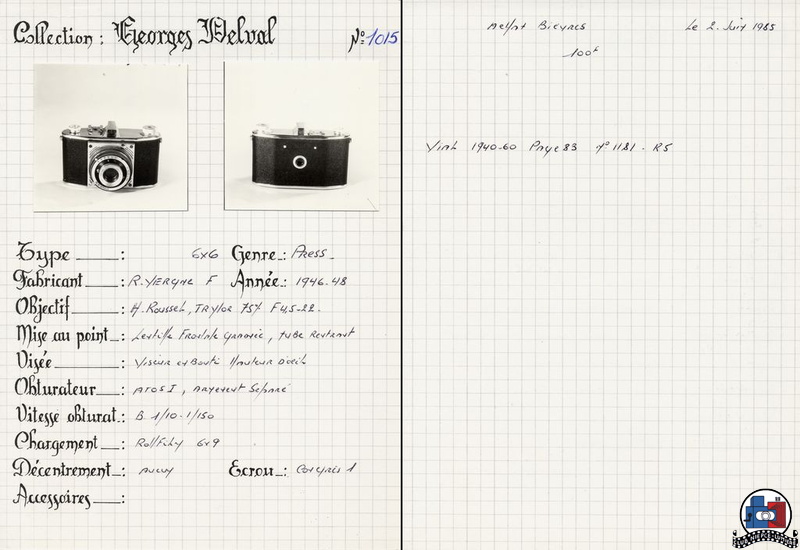 Collection : Georges Delval Nº 1015
Type : 6x6 Genre : Press
Fabricant : R. F Année : 1946-48
Objectif : H. Roussel, Trylor 75% F 4,5-22
Mise au point : Lentille Frontale, tube Rentrant
Visée : Viseur Hauteur D'oeil
Obturateur : ATOS I, Séparé
Vitesse obturat. : B 1/10-1/150
Chargement : Rollfilm 6x9
Décentrement : Aucun Ecrou : Congrès 1
Accessoires :
Bievres Le 2. Juin 1985
100F
1940-60 Page 83 nº 1181 - R5